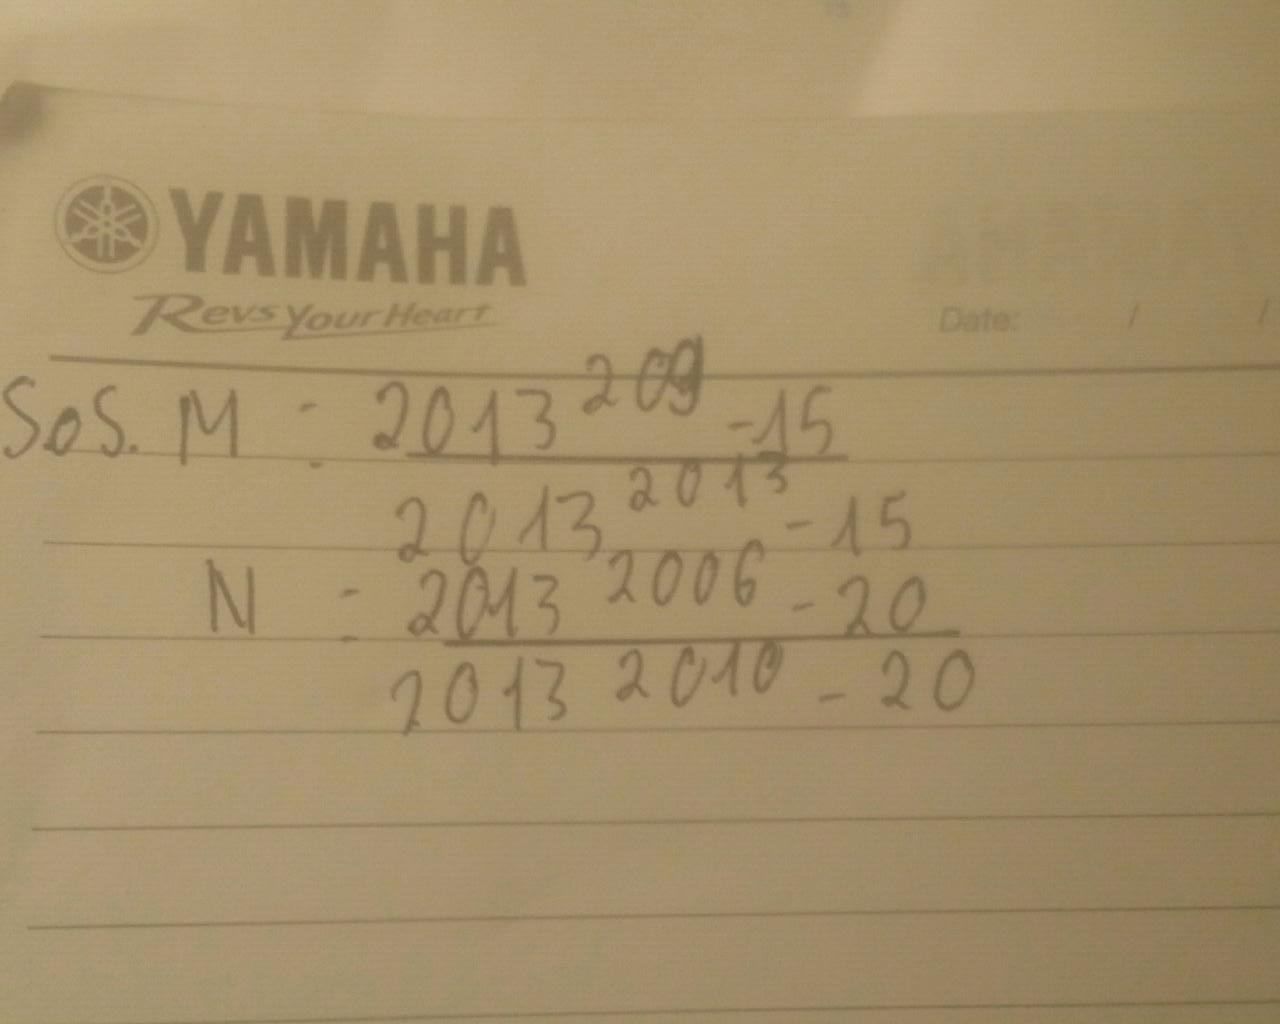 YAMAHA
Revs Your Heart
Date: / /
SoS. M : 2013^209 -15
2013^2013 -15
N : 2013^2006 -20
2013^2010 -20